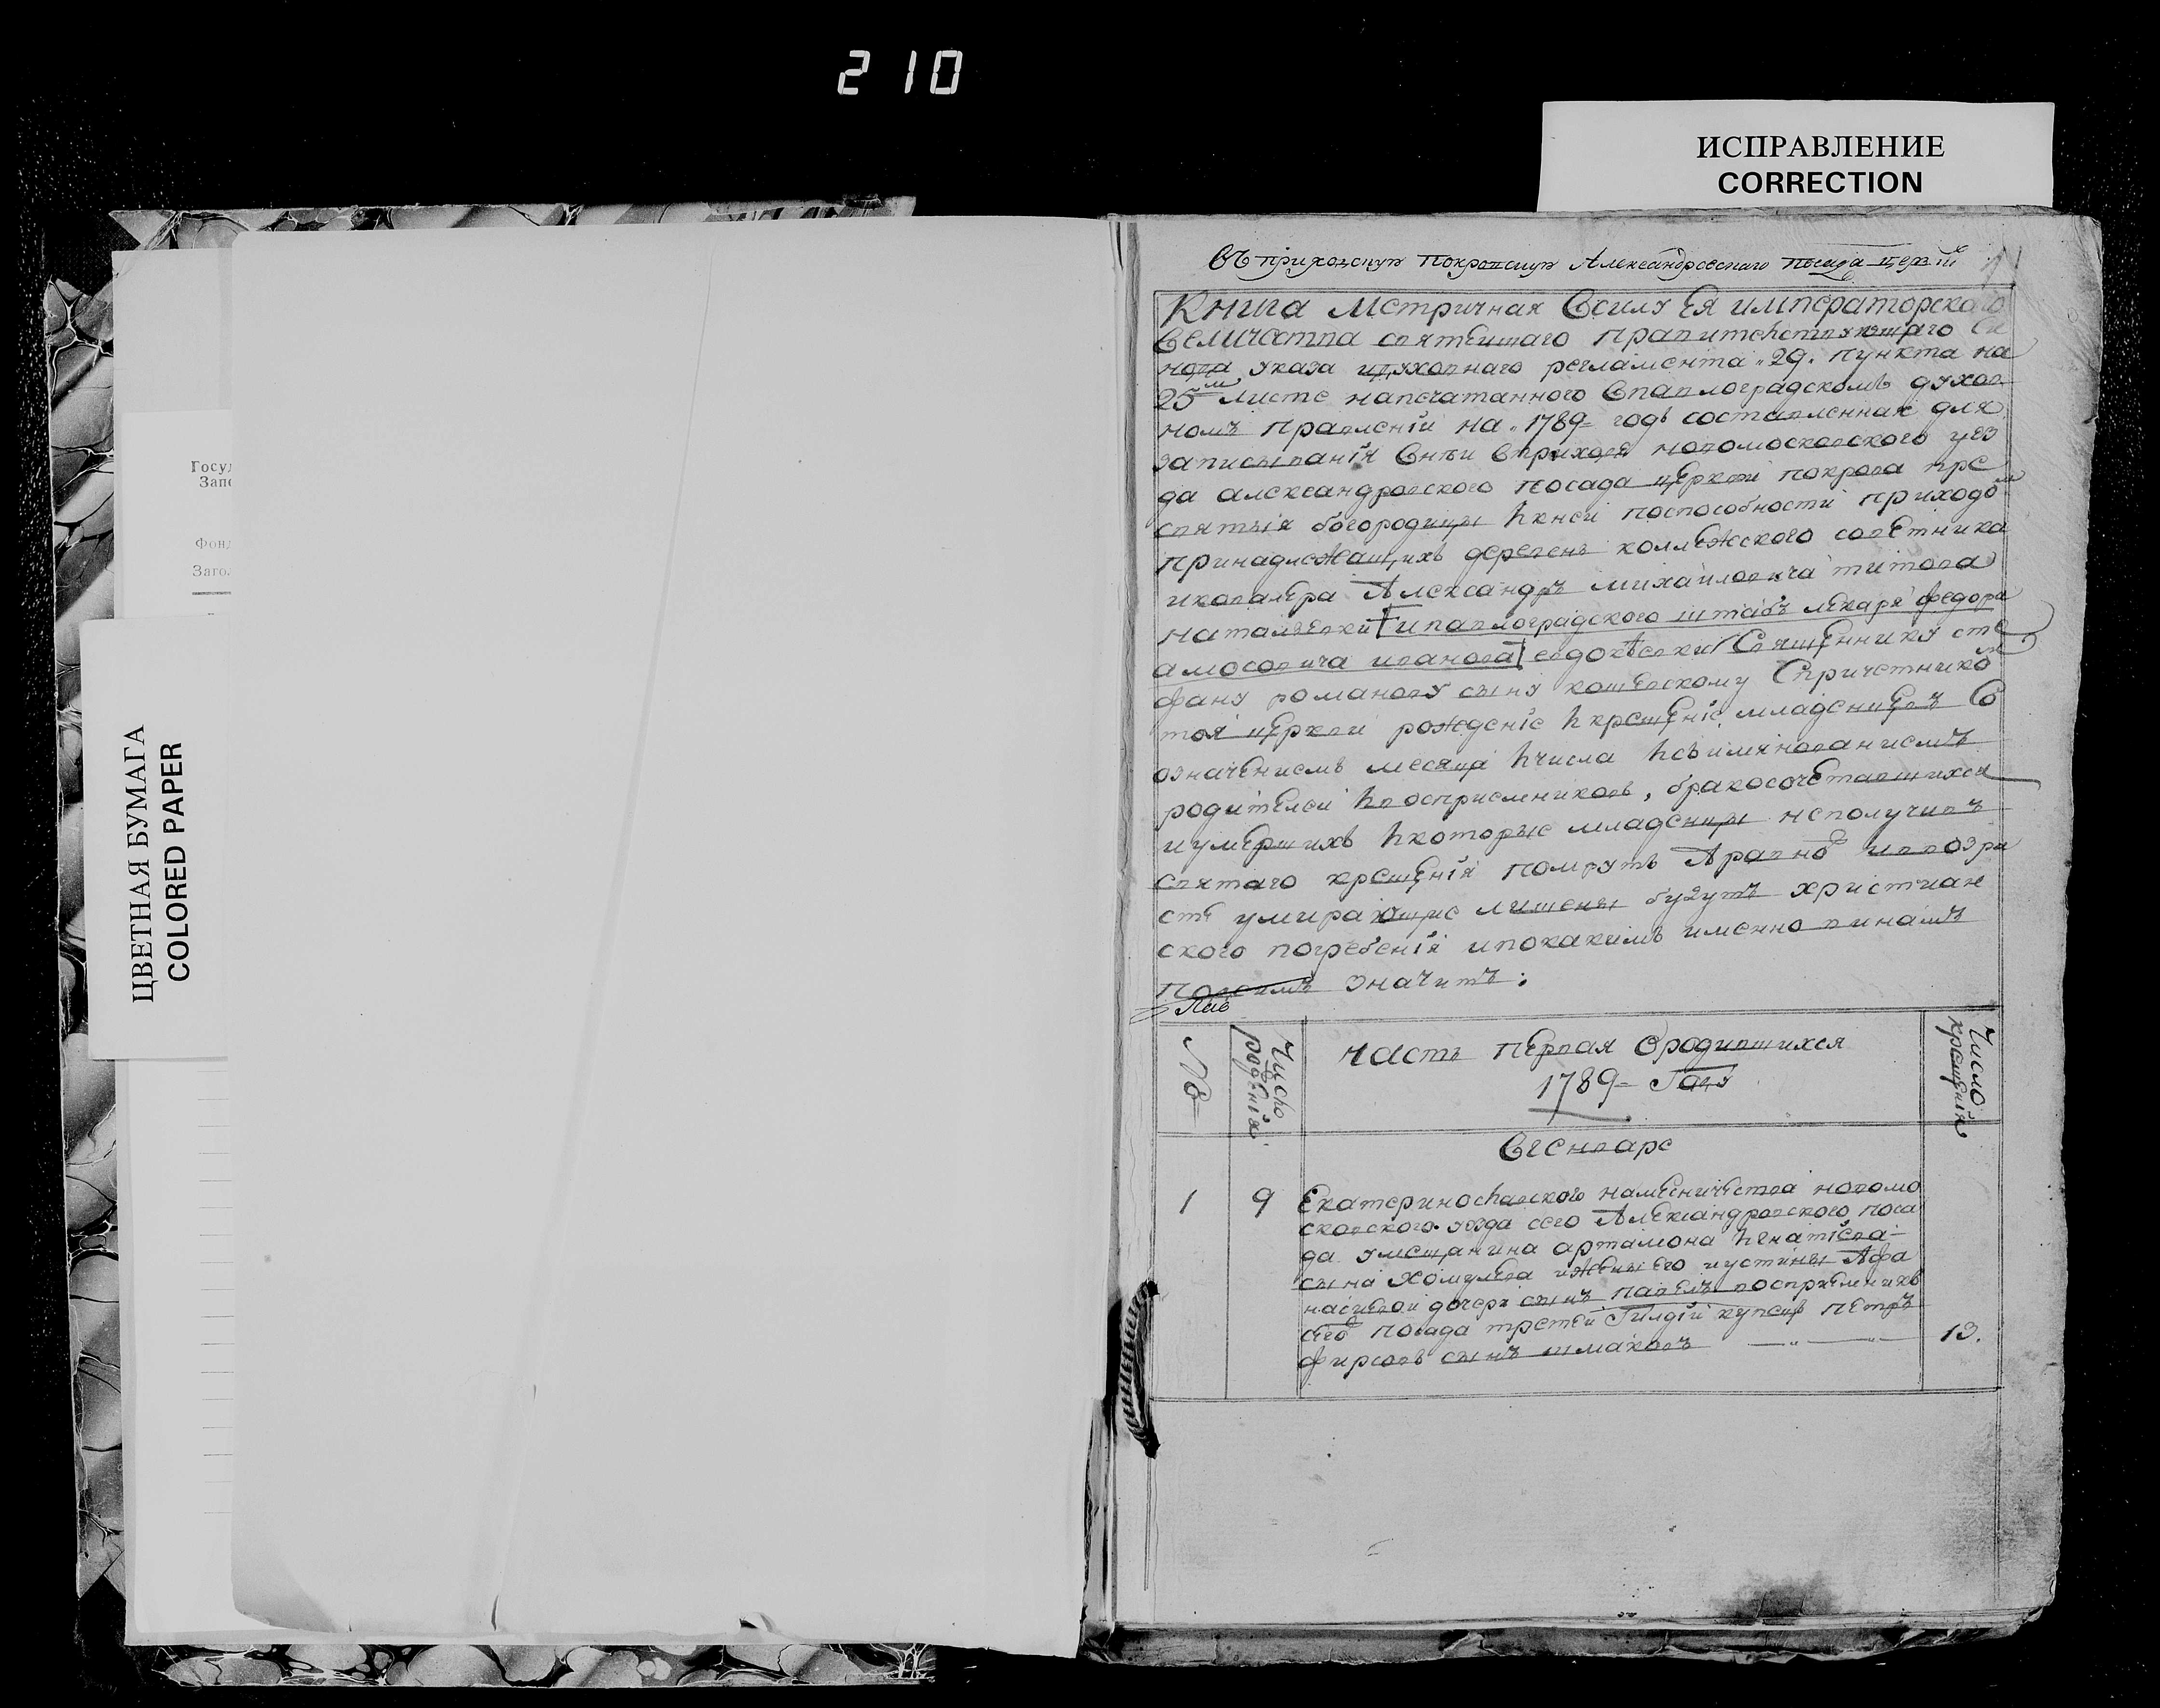 210
ИСПРАВЛЕНИЕ
CORRECTION
Госу
Запо
Фон
Заго
ЦВЕТНАЯ БУМАГА
COLORED PAPER
Въ приходскую Покровскую Александровскаго посада церк
Книга Метричная Всилу Ея императорского
Величества святеишаго правительствующаго Си
нода указа идуховнаго регламента 29. пункта на
25м листе напечатанного Впавлоградскомъ духов
номъ правленіи на 1789 годъ составленная для
записыванія Внеи вприходя новомосковского уез
да александровского посада церкви покрова пре
святыя богородицы икнеи поспособности приходом
принадлежащихъ деревень коллежского советника
икавалера Александръ михаиловича титова
наталѣевки ипавлоградского штабъ лекаря федора
амосовича иванова евдокѣевки Священнику сте
фану романову сыну кошевскому Спричетником
тоя церкви рожденіе икрещеніе младенцевъ Со
означениемъ месяца ичисла исъимянованиемъ
родителеи ивосприемниковъ, бракосочетавшихся
иумершихъ икоторые младенцы неполучивъ
святаго крещенія помрутъ Аравно ивпозри
сте умирающие лишены будутъ христиан
ского погребенія ипокакимъ именно винамъ
посимъ значитъ:
№
Число рожденія
часть первая Ородившихся
1789 Году
Число крещенія
Вгенваре
1 9 Екатеринославского намесничества новомо
сковского уезда сего Александровского поса
да умещанина артамона игнатіева
сына хомулева ижены его иустины Афа
насиевои дочери сынъ павелъ восприемникъ
сего посада третеи Гилдіи купецъ петръ
фирсовъ сынъ шмаковъ 13.